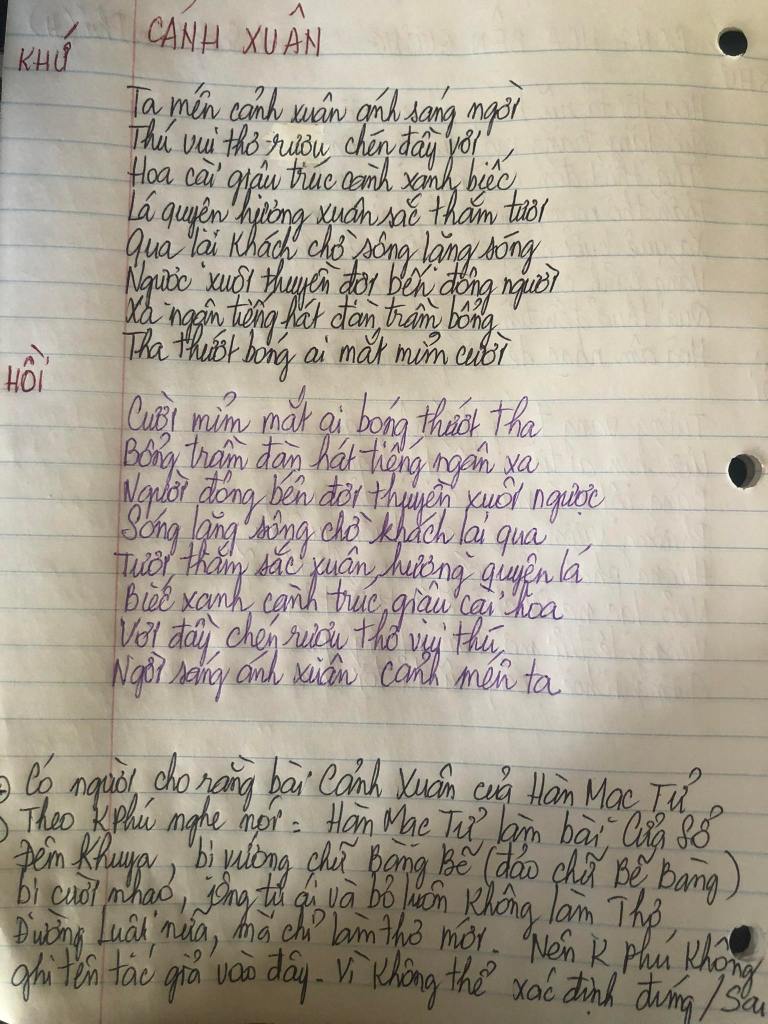 CẢNH XUÂN
KHỨ
Ta mến cảnh xuân ánh sáng ngời
Thú vui thơ rượu chén đầy vơi
Hoa cài giậu trúc cành xanh biếc
Lá quyện hương xuân sắc thắm tươi
Qua lại khách chờ sông lặng sóng
Ngược xuôi thuyền đợi bến đông người
Xa ngân tiếng hát đàn trầm bổng
Tha thướt bóng ai mắt mỉm cười
HỒI
Cười mỉm mắt ai bóng thướt tha
Bổng trầm đàn hát tiếng ngân xa
Người đông bến đợi thuyền xuôi ngược
Sóng lặng sông chờ khách lại qua
Tươi thắm sắc xuân hương quyện lá
Biếc xanh cành trúc giậu cài hoa
Vơi đầy chén rượu thơ vui thú
Ngời sáng ánh xuân cảnh mến ta
Có người cho rằng bài Cảnh Xuân của Hàn Mạc Tử
Theo K Phú nghe nói = Hàn Mạc Tử làm bài Cửa Sổ
Đêm Khuya, bị vướng chữ Bàng Bẽ (đảo chữ Bẽ Bàng)
bị cười nhạo, ông tự ái và bỏ luôn không làm Thơ
Đường Luật nữa, mà chỉ làm thơ mới. Nên K Phú không
ghi tên tác giả vào đây. Vì không thể xác định đúng / Sai